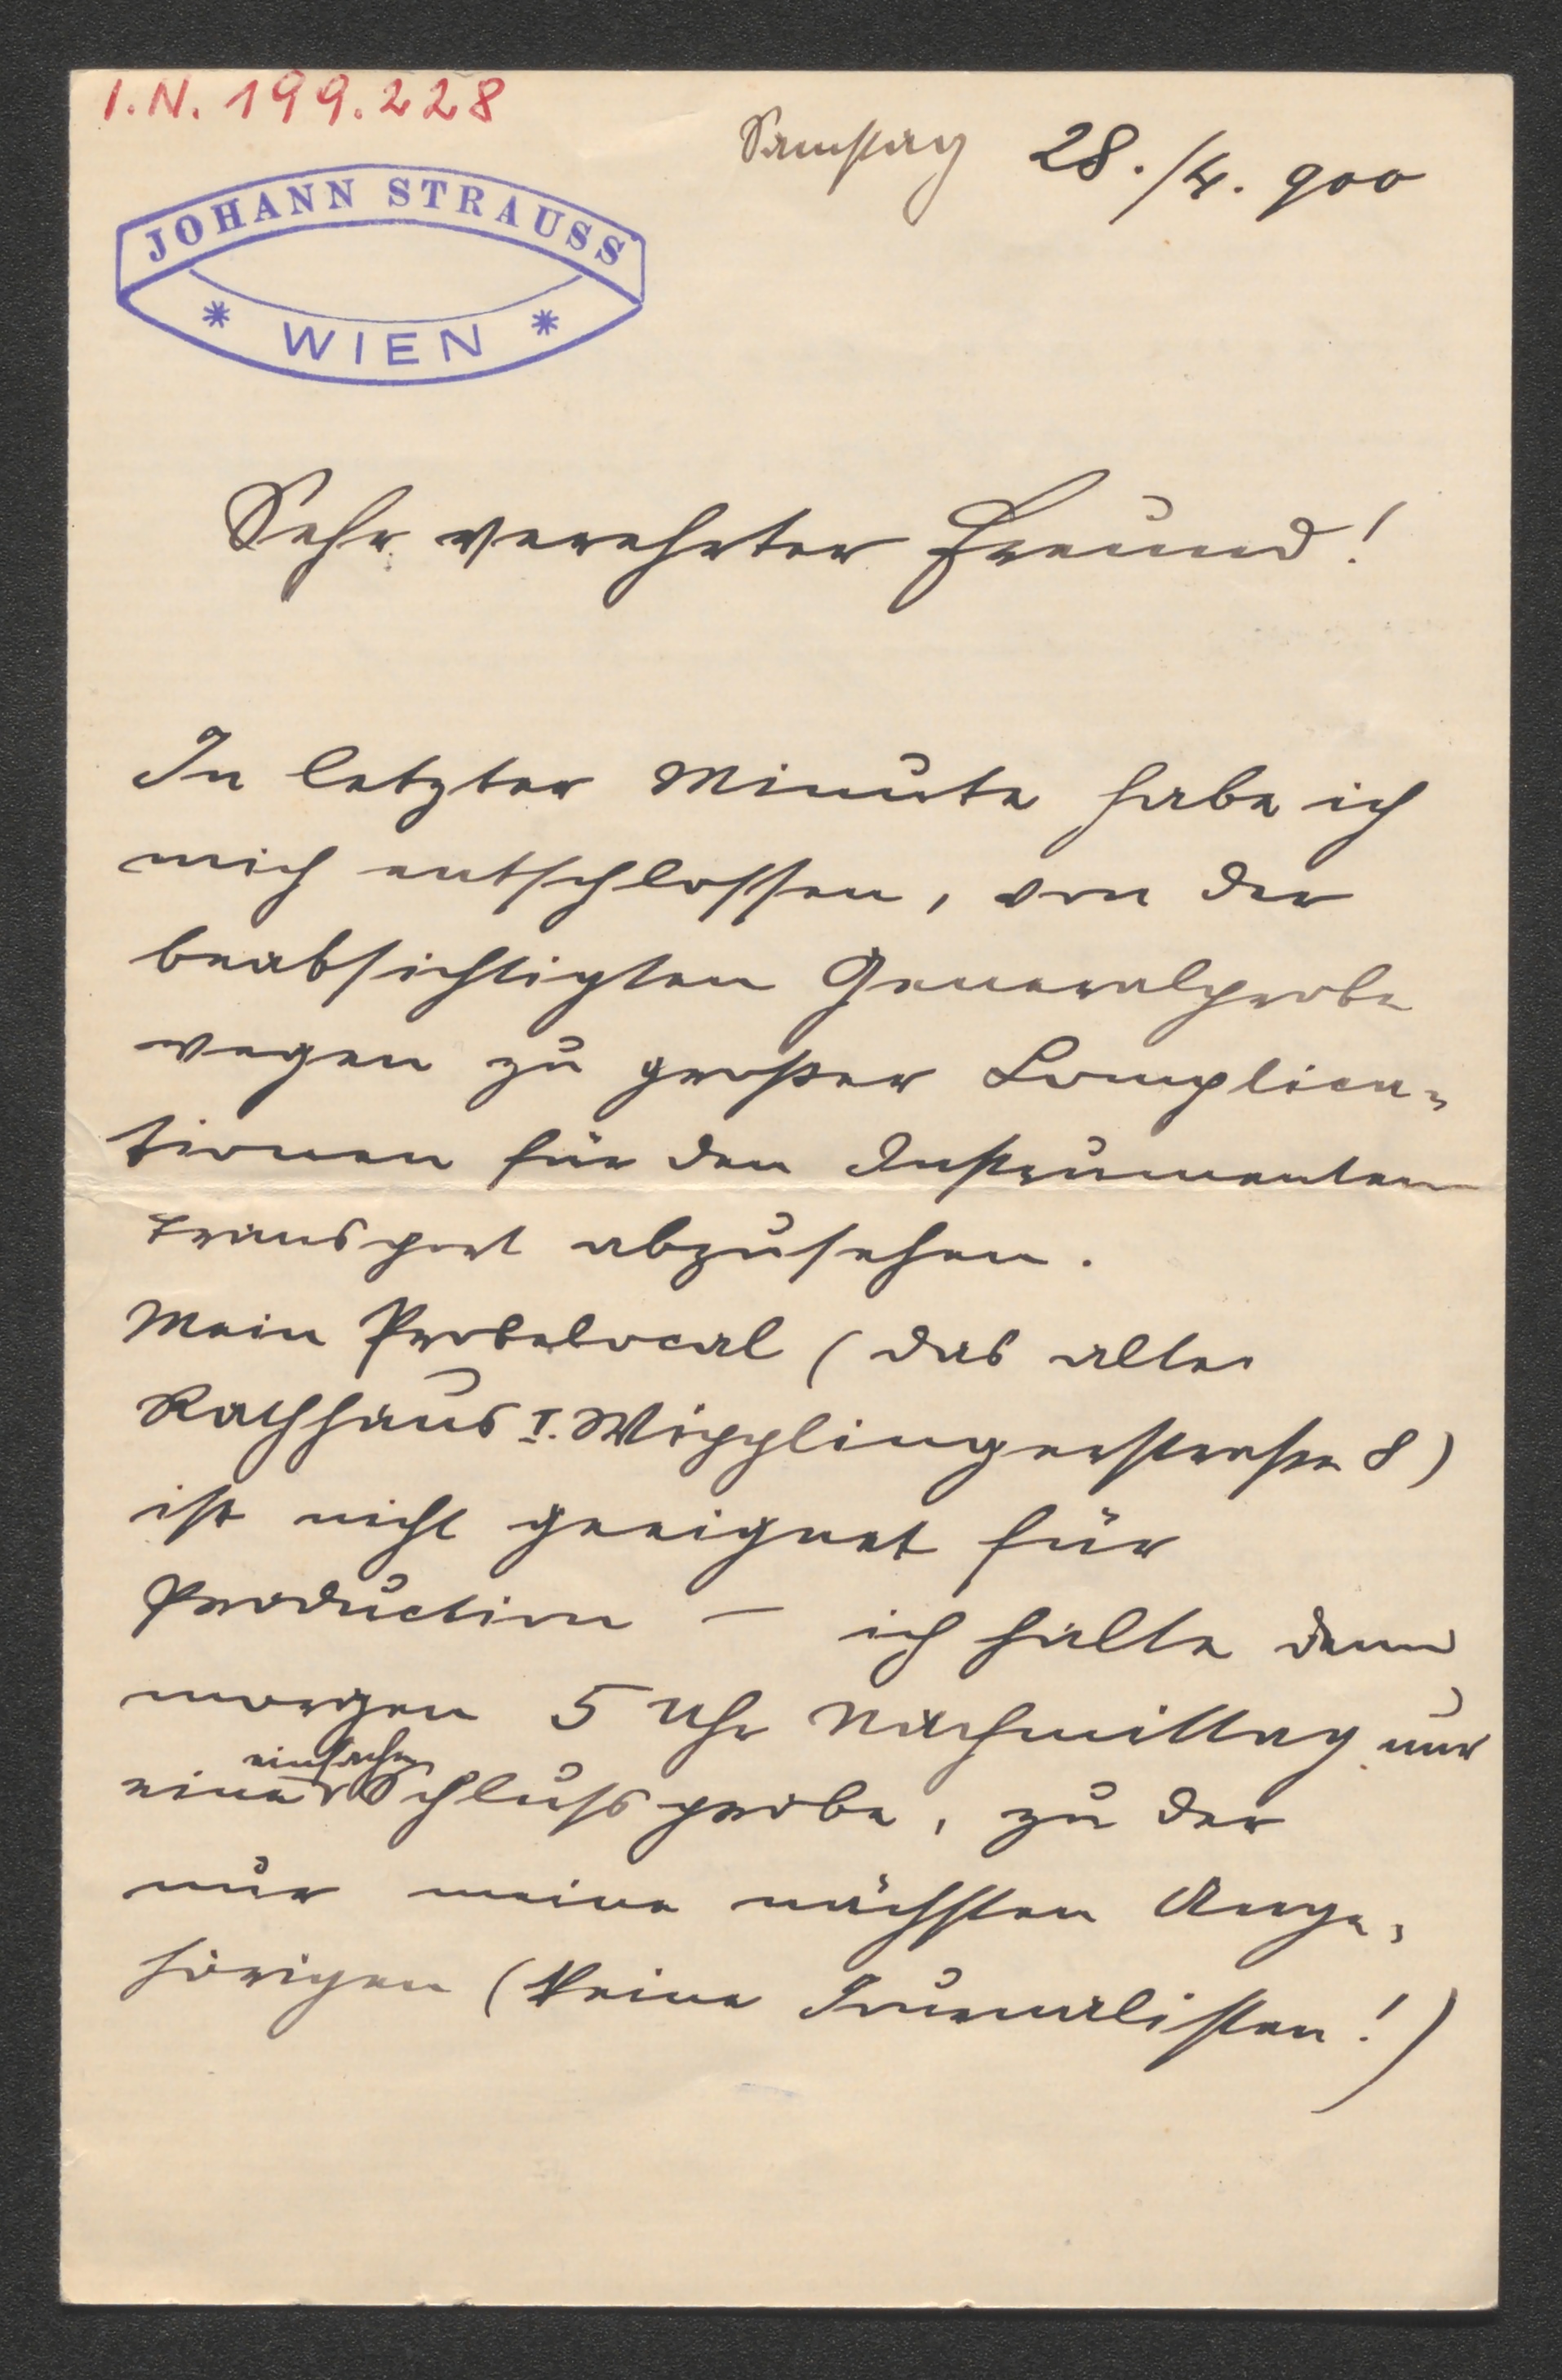 I.N. 199.228
Samstag 28./4. 900
JOHANN STRAUSS
* WIEN *
Sehr verehrter Freund!
In letzter Minute habe ich
mich entschlossen, von der
beabsichtigten Generalprobe
wegen zu großer Complica=
tionen für den Instrumenten
transport abzusehen.
Mein Probelocal (das alte
Rathhaus I. Wipplingerstraße 8)
ist nicht geeignet für
Production — ich halte denn
morgen 5 Uhr Nachmittag nur
einfache
eine Schlußprobe, zu der
nur meine nächsten Ange=
hörigen (keine Journalisten!)